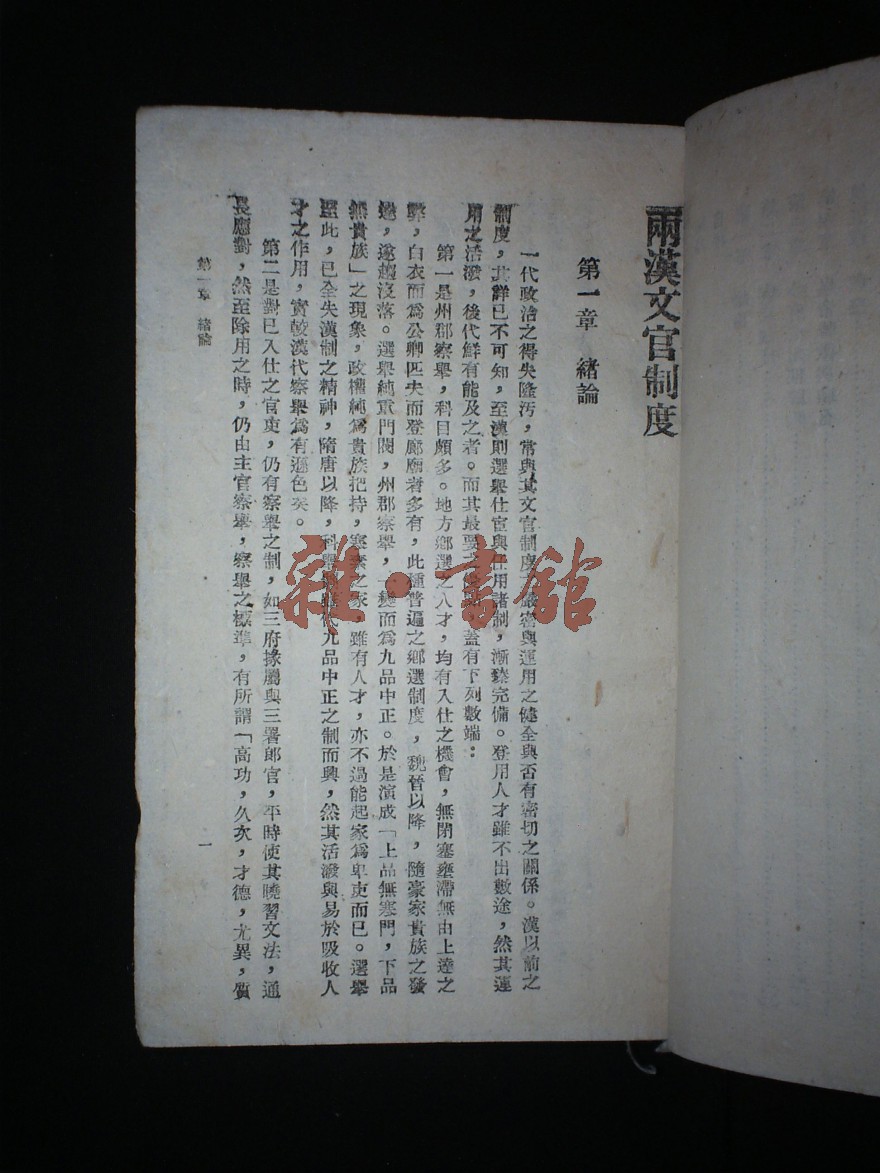 兩漢文官制度
第一章 緒論
一代政治之得失隆汚，常與其文官制度之嚴密與運用之健全與否有密切之關係。漢以前之
制度，其詳已不可知，至漢則選舉仕宦與任用諸制，漸臻完備。登用人才雖不出數途，然其運
用之活潑，後代鮮有能及之者。而其最要之點，蓋有下列數端：
第一是州郡察舉，科目頗多。地方鄉選之人才，均有入仕之機會，無閉塞壅滯無由上達之
弊，白衣而爲公卿匹夫而登廊廟者多有，此種普遍之鄉選制度，魏晉以降，隨豪家貴族之發
達，遂趨沒落。選舉純重門閥，州郡察舉，一變而爲九品中正。於是演成「上品無寒門，下品
無貴族」之現象，政權純爲貴族把持，寒素之家，雖有人才，亦不過能起家爲卑吏而已。選舉
至此，已全失漢制之精神，隋唐以降，科舉代九品中正之制而興，然其活潑與易於吸收人
才之作用，實較漢代察舉爲有遜色矣。
第二是對已入仕之官吏，仍有察舉之制，如三府掾屬與三署郎官，平時使其曉習文法，通
長應對，然至除用之時，仍由主官察舉，察舉之標準，有所謂「高功，久次，才德，尤異，質
第一章 緒論
一
雜·書館